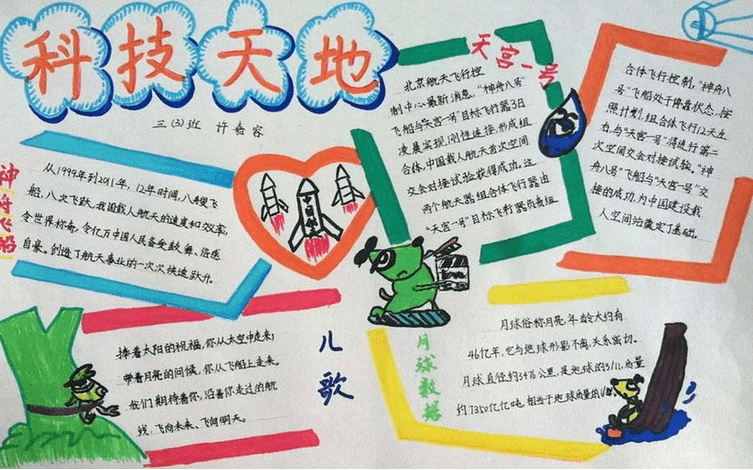 科技天地
三(3)班 许春容
神舟飞船
从1999年到2011年，12年时间，八艘飞
船，八次飞跃，我国载人航天的速度和效率，
令世界称奇，令亿万中国人民备受鼓舞、倍感
自豪，创造了航天事业的一次次快速跃升。
中国航天
天宫一号
北京航天飞行控
制中心最新消息，“神舟八号”
飞船与“天宫一号”目标飞行器3日
凌晨实现刚性连接，形成组
合体，中国载人航天首次空间
交会对接试验获得成功。这
两个航天器组合体飞行器由
“天宫一号”目标飞行器负责组
合体飞行控制，“神舟八
号”飞船处于停靠状态，按
照计划，组合体飞行12天左
右，与“天宫一号”将进行第二
次空间交会对接试验。“神
舟八号”飞船与“天宫一号”交
接的成功，为中国建设载
人空间站奠定了基础。
儿歌
捧着太阳的祝福，你从太空中走来；
带着月亮的问候，你从飞船上走来。
我们期待着你，沿着你走过的航
线，飞向未来、飞向明天。
月球数据
月球俗称月亮，年龄大约有
46亿年，它与地球形影不离，关系密切。
月球直径约3476公里，是地球的3/11，质量
约7350亿亿吨，相当于地球质量的1/81